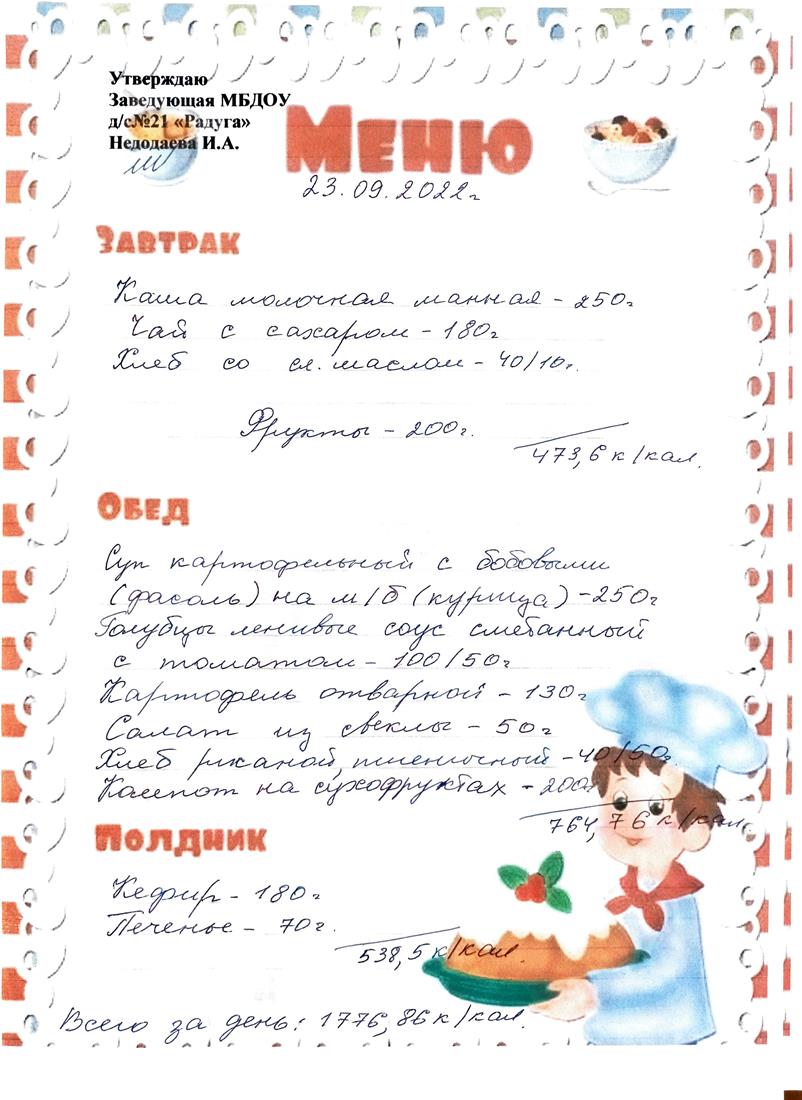 Утверждаю
Заведующая МБДОУ
д/с№21 «Радуга»
Недодаева И.А.
Меню
23.09.2022г
Завтрак
Каша молочная манная - 250г
Чай с сахаром - 180г
Хлеб со сл. маслом - 40/10г.
Фрукты - 200г.
473,6 к/кал.
Обед
Суп картофельный с бобовыми
(фасоль) на м/б (курица) - 250г
Голубцы ленивые соус сметанный
с томатом - 100/50г
Картофель отварной - 130г
Салат из свеклы - 50г
Хлеб ржаной, пшеничный - 40/50г
Компот на сухофруктах - 200г
764,76 к/кал.
Полдник
Кефир - 180г
Печенье - 70г.
538,5 к/кал.
Всего за день: 1776,86 к/кал.